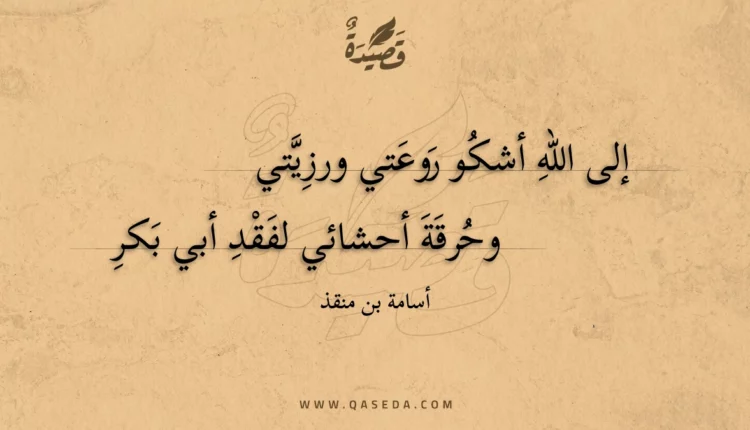 قَصِيْدَةٌ
إلى اللهِ أشكُو رَوعَتي ورزِيَّتي
وحُرقَةَ أحشائي لفَقْدِ أبي بَكرِ
أسامة بن منقذ
WWW.QASEDA.COM